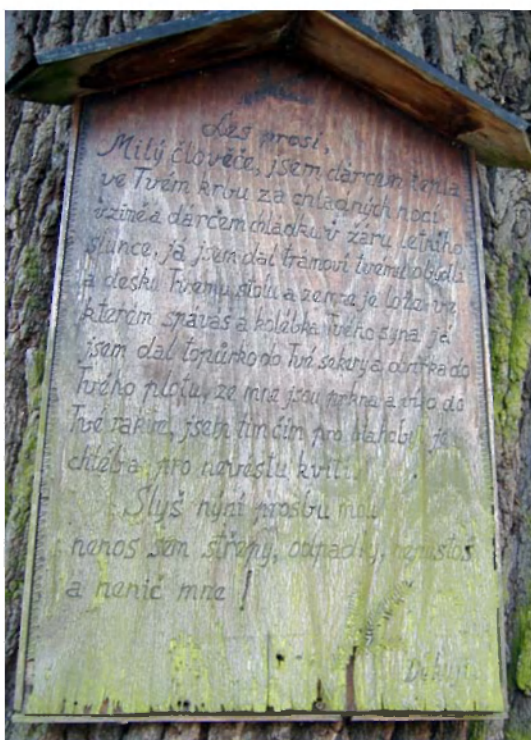 Les prosí,
Milý člověče, jsem dárcem tepla
ve Tvém krbu za chladných nocí
v zimě a dárcem chládku v žáru letního
slunce, já jsem dal trámoví tvému obydlí
a desku Tvému stolu a ze mne je lože ve
kterém spáváš a kolébka Tvého syna, já
jsem dal topůrko do Tvé sekery a dvířka do
Tvého plotu, ze mne jsou prkna a víko do
Tvé rakve, jsem tím čím pro blahobyt je
chléba pro nevěstu kvítí.
Slyš nyní prosbu mou
nenos sem střepy, odpadky, nepustoš
a nenič mne!
Děkuji